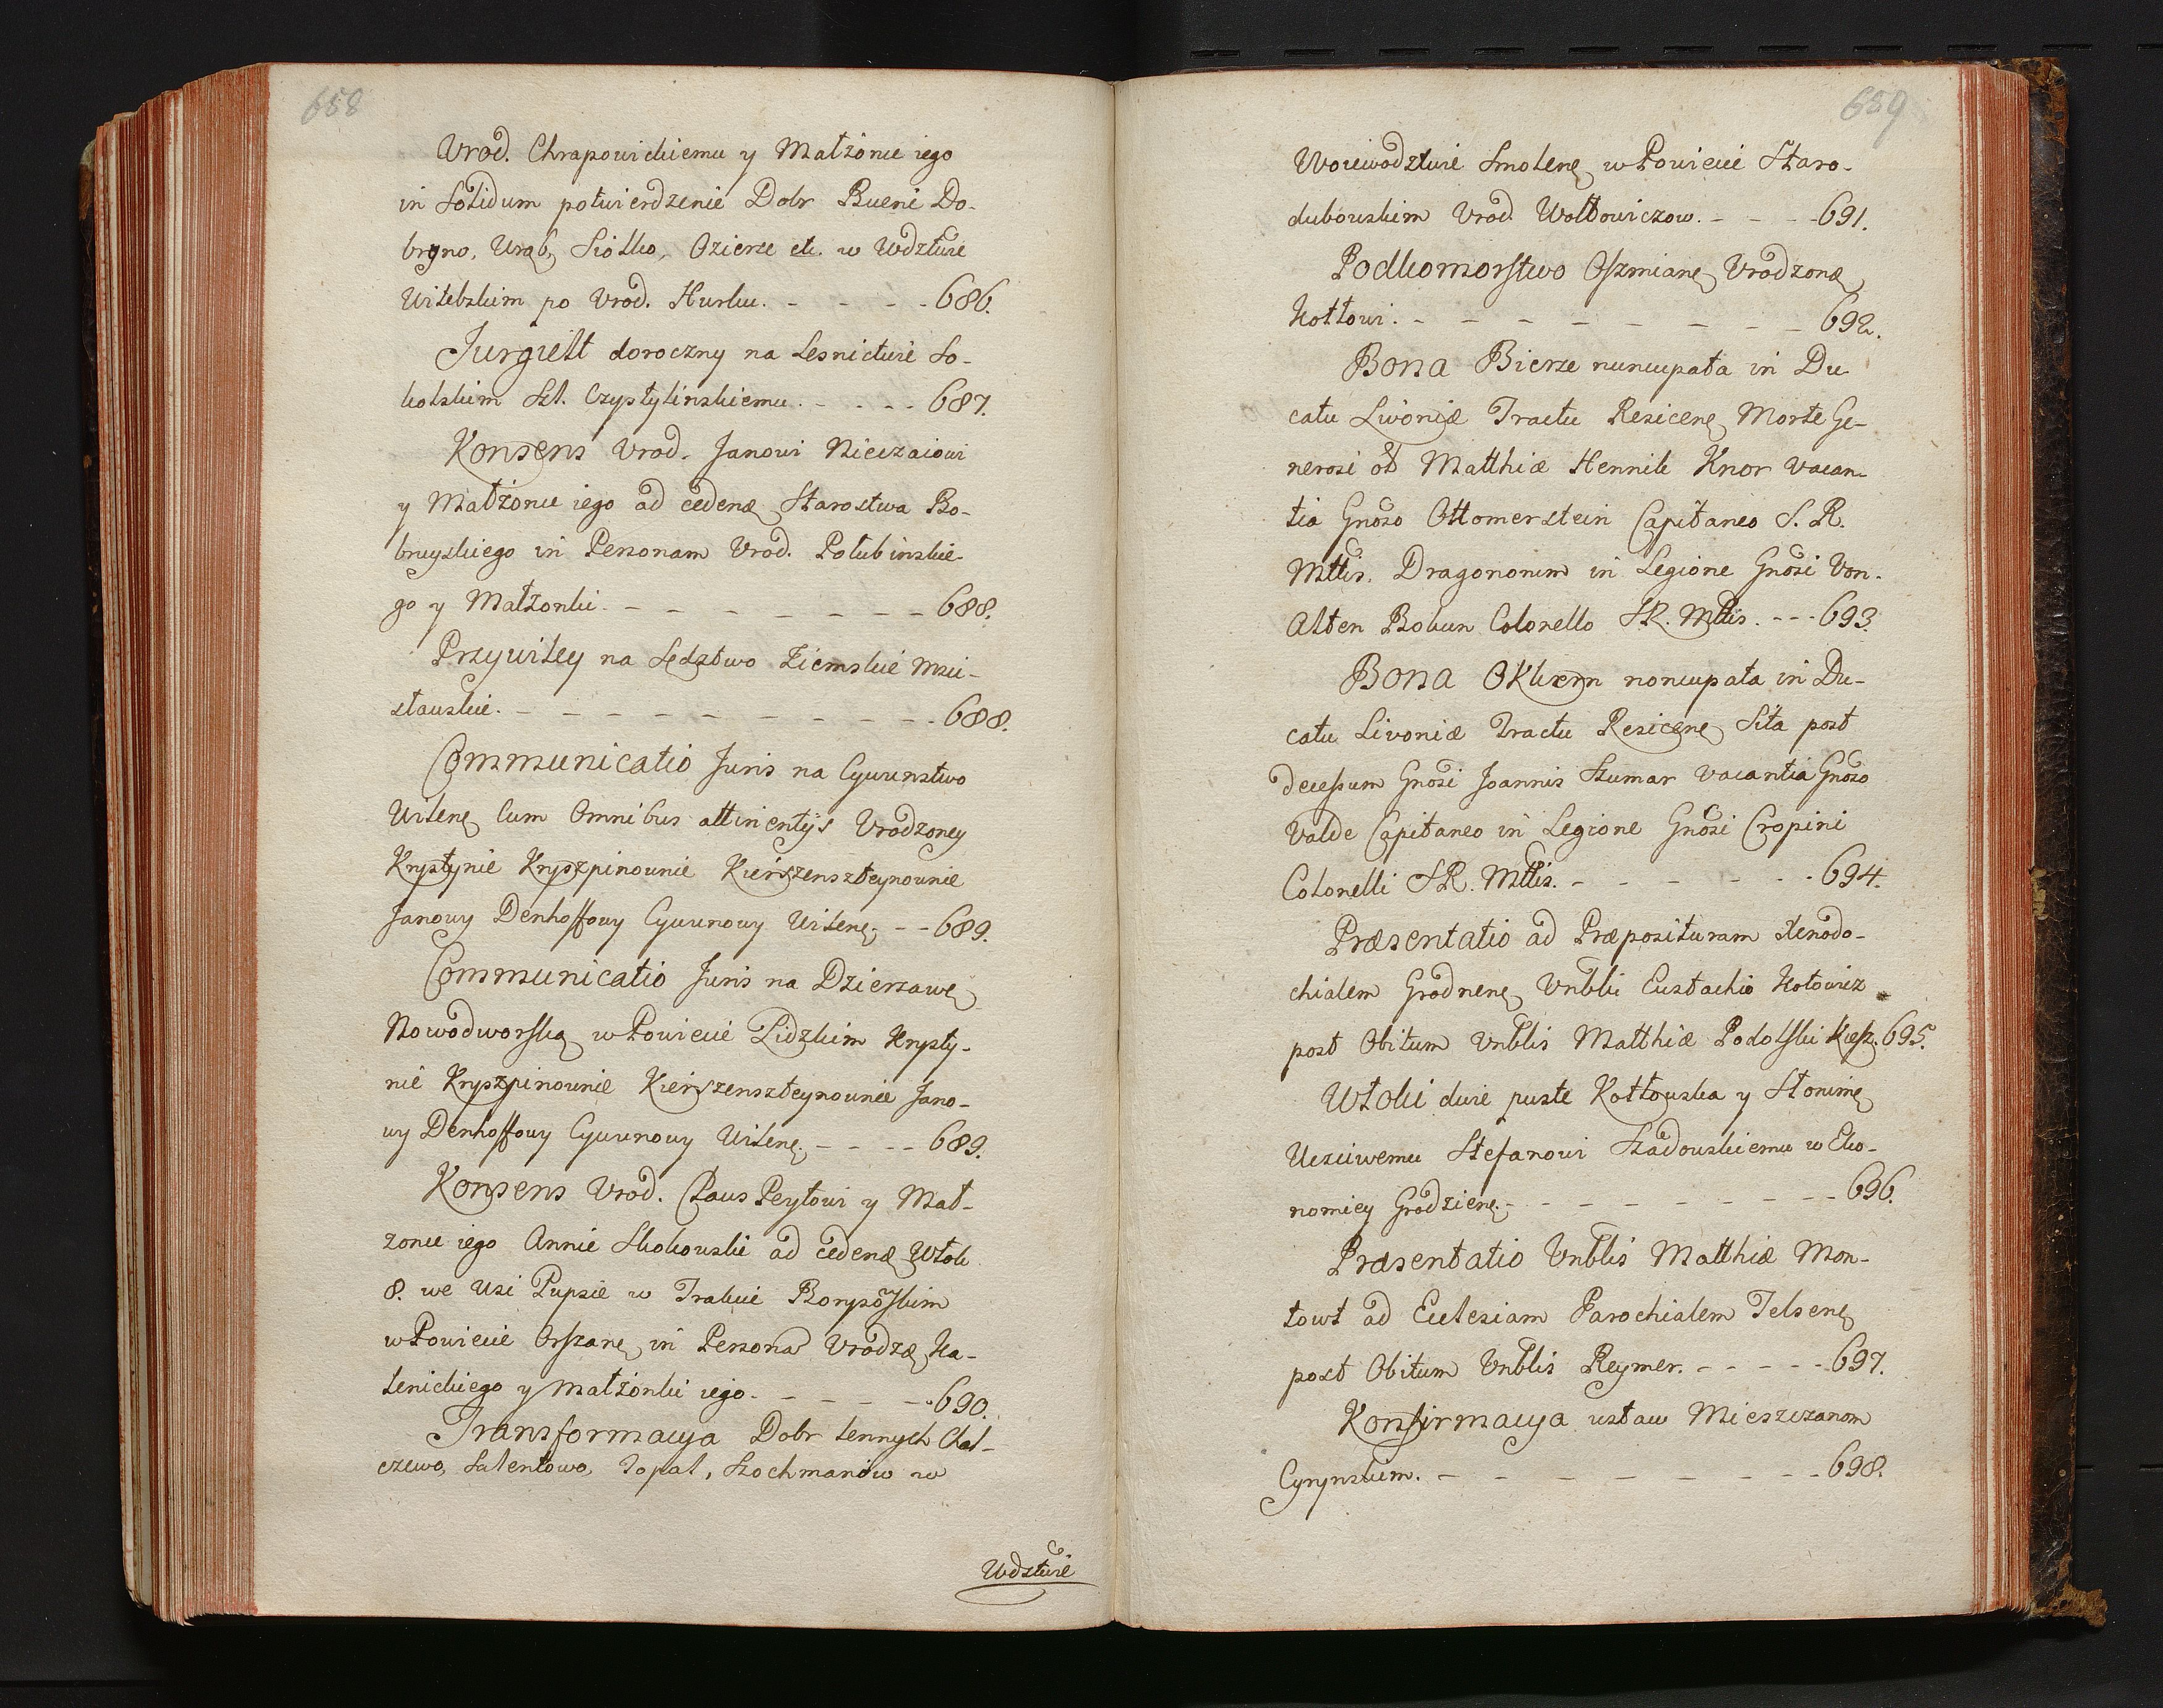 658
Urod. Chrapowickiemu y Małżonce iego
in Solidum potwierdzenie Dobr Bueni Do-
bryno, Urąb, Siołko, Ozierze etc. w Wdztwie
Witebskim po Urod. Hurku. - - - - 686.
Jurgielt doroczny na Lesnictwie So-
kolskim Szl. Czystylinskiemu. - - - - 687.
Konsens Urod. Janowi Nieczaiowi
y Małżonce iego ad cedenꝫ Starostwa Bo-
bruyskiego in Personam Urod. Połubinskie-
go y Małżonki. - - - - - - - - 688.
Przywiley na Sędztwo Ziemskie Mści-
sławskie. - - - - - - - - - - 688.
Communicatio Juris na Cywunstwo
Wilenꝫ Cum Omnibus attinentÿs Urodzoney
Krystynie Kryszpinownie Kierszenszteynownie
Janowy Denhoffowy Cywunowy Wilenꝫ - - 689.
Communicatio Juris na Dzierzawę
Nowodworską w Powiecie Lidzkim Krysty-
nie Kryszpinownie Kierszenszteynownie Jano-
wy Denhoffowy Cywunowy Wilenꝫ. - - - - 689.
Konsens Urod. Claus Peytowi y Mał-
zonce iego Annie Skokowskie ad cedenꝫ Włok
8. we Wsi Pupsie w Trakcie Borysoskim
w Powiecie Orszanꝫ in Persona Urodzꝫ Ka-
lenickiego y Małżonki iego. - - - - 690.
Transformacya Dobr Lennych Chal-
czewo, Salentowo, Topal, Szochmanow w
Wdztwie
659
Woiewodztwie Smolenꝫ w Powiecie Staro-
dubowskim Urod. Wołłowiczow. - - - - 691.
Podkomorstwo Oszmianꝫ Urodzonꝫ
Kottowi. - - - - - - - - - 692.
Bona Bierze nuncupata in Du
catu Livoniæ Tractu Resicenꝫ Morte Ge-
nerosi ol Matthiæ Hennik Knor vacan-
tia Gnoso Ottomerstein Capitaneo S. R.
Mttis. Dragonorum in Legione Gnosi Von-
Alten Bokun Colonello S R. Mttis. - - - 693.
Bona Oklxern noncupata in Du-
catu Livoniæ Tractu Resicenꝫ Sita post
decessum Gnosi Joannis Szumar vacantia Gnoso
Valde Capitaneo in Legione Gnosi Cropini
Colonelli S R. Mttis. - - - - - - 694.
Præsentatio ad Præposituram Xenodo-
chialem Grodnenꝫ Vnbli Eustachio Kotowicz
post Obitum Vnblis Matthiæ Podolski Kiesz. 695.
Włoki dwie puste Kotłowska y Słonimꝫ
Uczciwemu Stefanowi Szadowskiemu w Eko-
nomiey Grodzienꝫ. - - - - - - - - 696.
Præsentatio Vnblis Matthiæ Mon-
towt ad Ecclesiam Parochialem Telsenꝫ
post Obitum Vnblis Reymer. - - - - - 697.
Konfirmacya ustaw Mieszczanom
Cyrynskim. - - - - - - - - - 698.